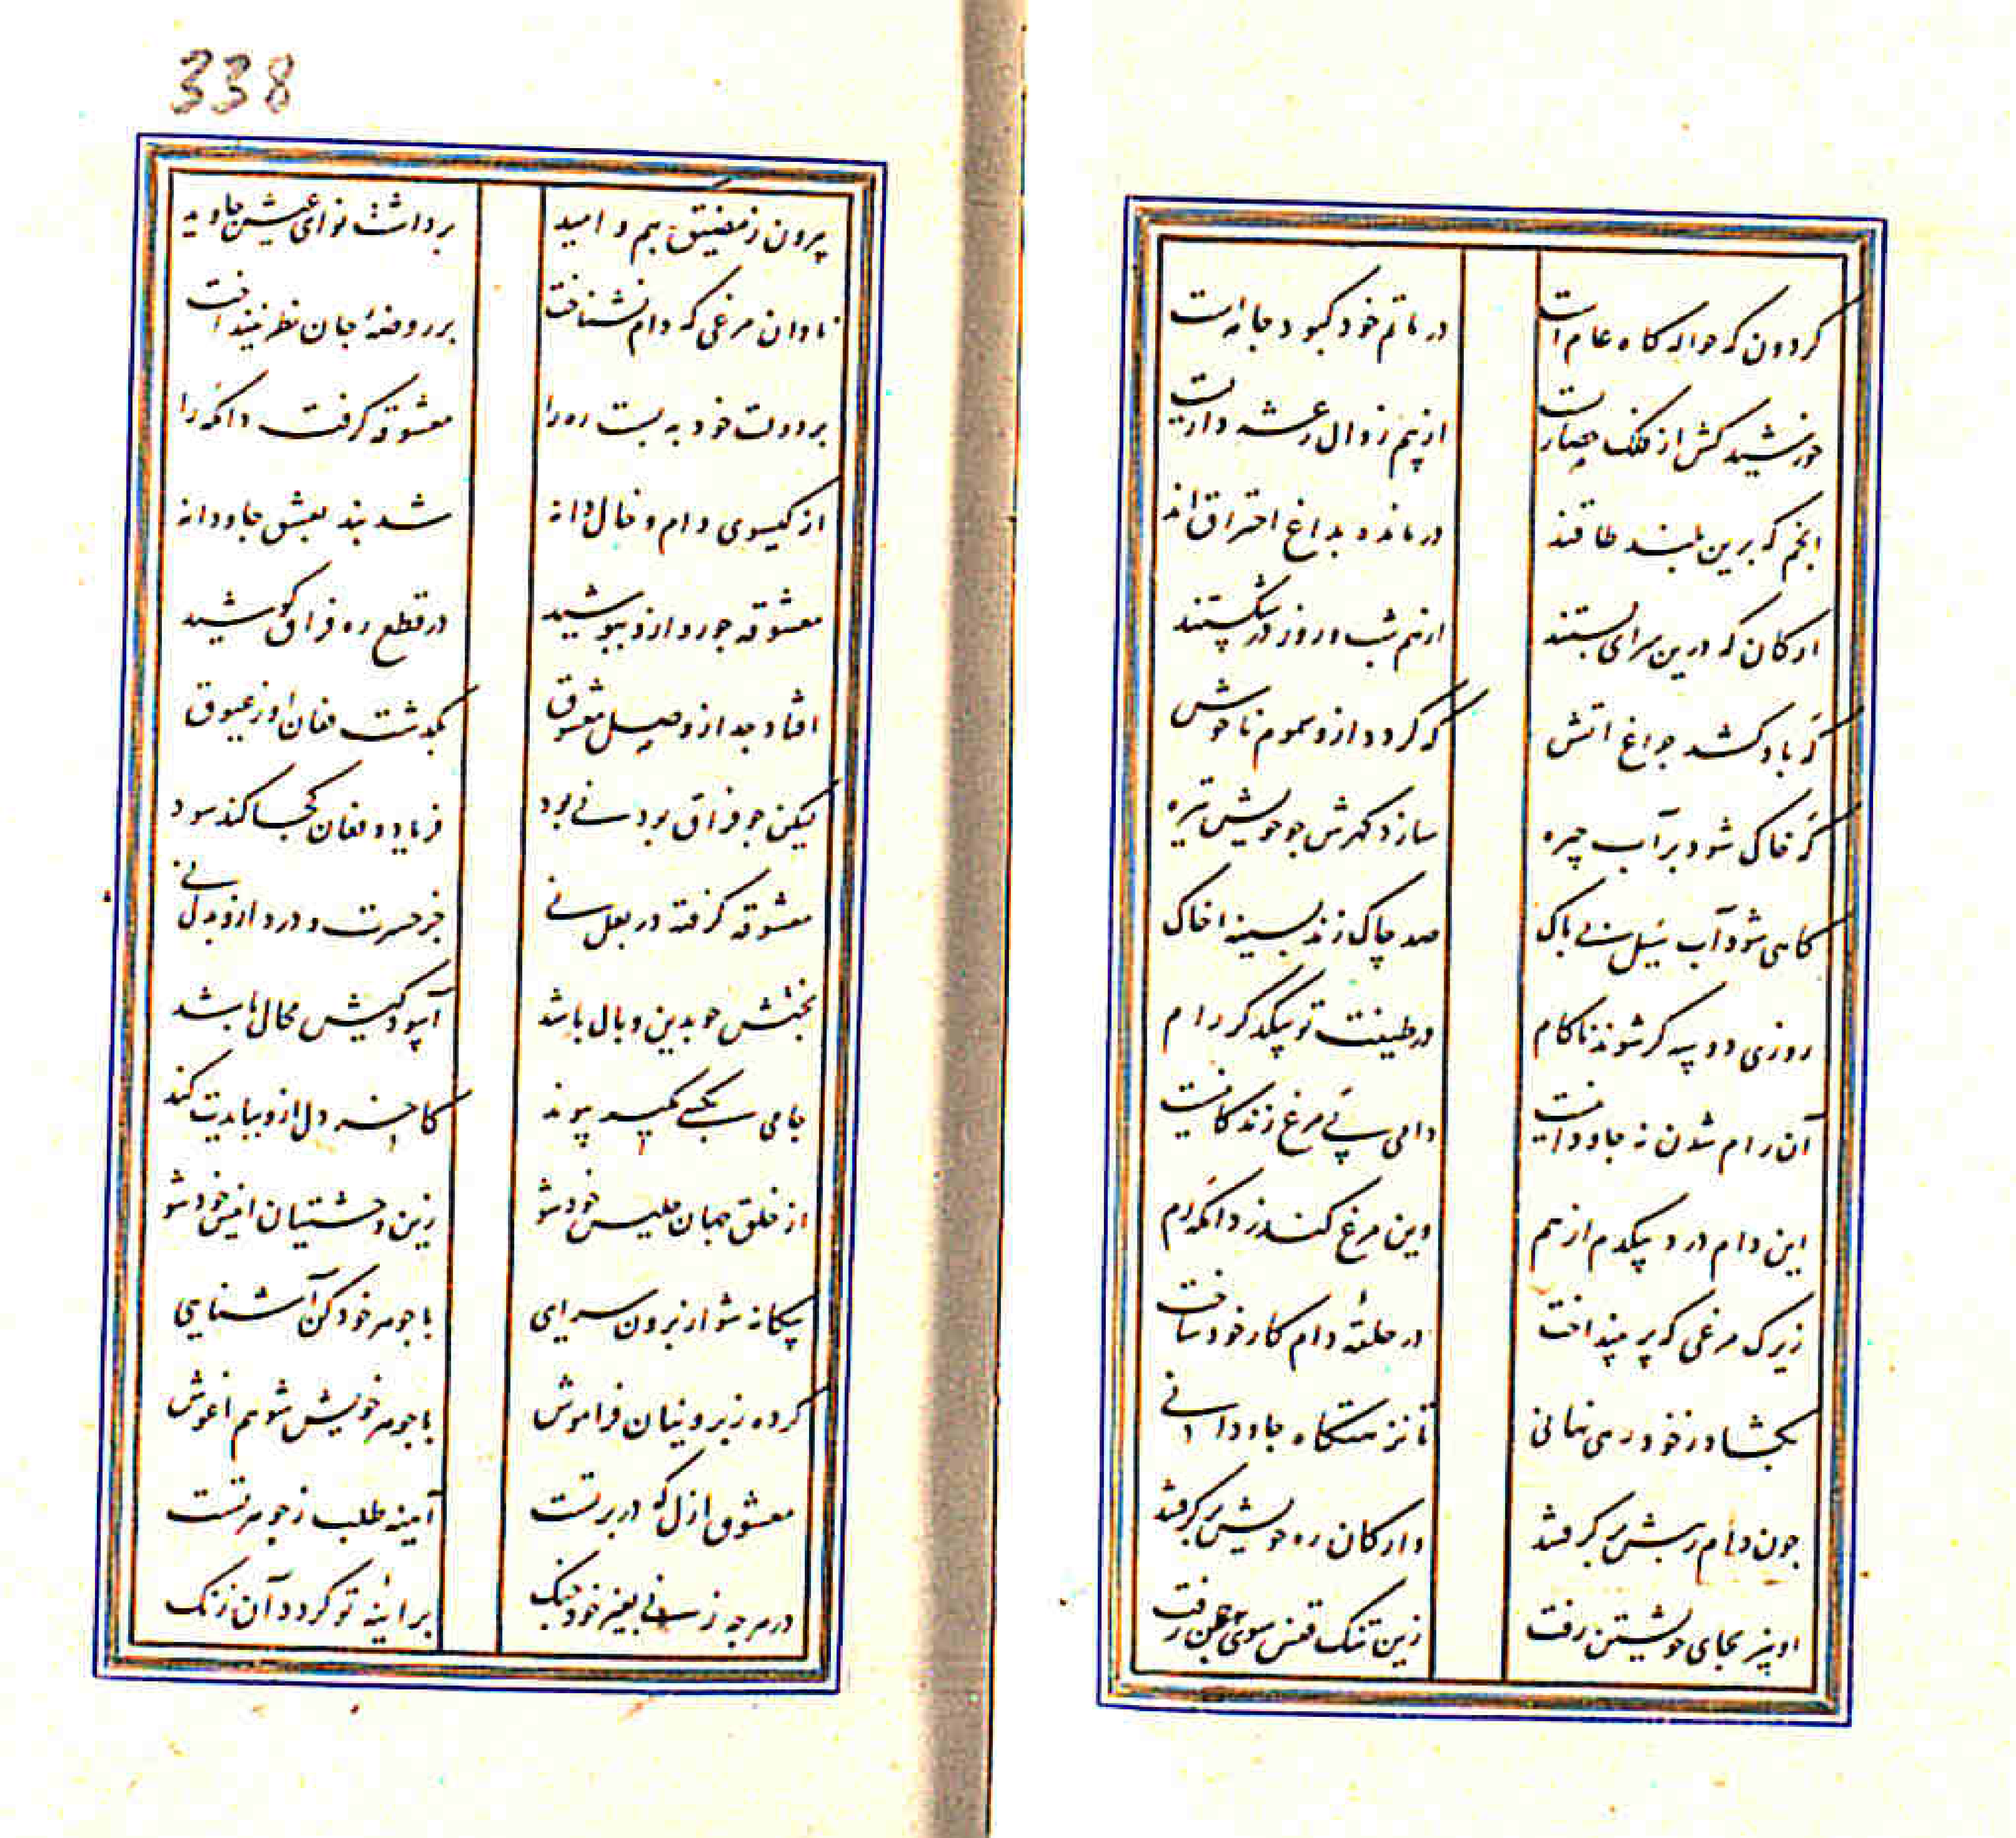 کردون که حواله کاه عام است
در ماتم خود کبود جامه است
خورشید کش از فلک حصاریست
از بیم زوال رعشه داریست
انجم که برین بلند طاقند
درمانده بداغ احتراق اند
ارکان که درین سرای بستند
از هم شب و روز در شکستند
که باد کشد چراغ آتش
که کردد ازو سموم ناخوش
که خاک شود بر آب چیره
سازد کهرش چو خویش تیره
کاهی شود آب سیل بی باک
صد چاک زند بسینهٔ خاک
روزی دو سه کر شوند ناکام
در طینت تو بیکدکر رام
آن رام شدن نه جاودانیست
دامی پی مرغ زندکانیست
این دام درد بیکدم از هم
وین مرغ کند ز دانکه رم
زیرک مرغی که پر بینداخت
در حلقهٔ دام کار خود ساخت
بکشاد ز خود رهی نهانی
تا نزهتکاه جاودانی
چون دام رهش ز پیش برکرفتند
و ارکان ره خویش برکرفتند
او نیز بجای خویشتن رفت
زین تنک قفس سوی چمن رفت
338
بیرون ز مضیق بیم و امید
برداشت نوای عیش جاوید
نادان مرغی که دام نشناخت
بر روضهٔ جان نظر نینداخت
بر دولت خود به بست ره را
معشوقه کرفت دانکه را
از کیسوی دام و خال دانه
شد بند بعشق جاودانه
معشوقه چو رو ازو بپوشید
در قطع ره فراق کوشید
افتاد جدا ز وصل معشوق
بکذشت فغان او ز عیوق
لیکن چو فراق بودنی بود
فریاد و فغان کجا کند سود
معشوقه کرفته در بغل نی
جز حسرت و درد ازو بدل نی
بختش چو بدین وبال باشد
آسودکیش محال باشد
جامی بکسی مکیر پیوند
کاخر دل ازو ببایدت کند
از خلق جهان جلیس خود شو
زین وحشتیان انیس خود شو
بیکانه شو از برون سرایی
با جوهر خود کن آشنایی
کرده ز برونیان فراموش
با جوهر خویش شو هم اغوش
معشوق ازل که در بر تست
آیینه طلب ز جوهر تست
در هر چه زنی بغیر خود چنک
بر اینهٔ تو کردد آن زنک